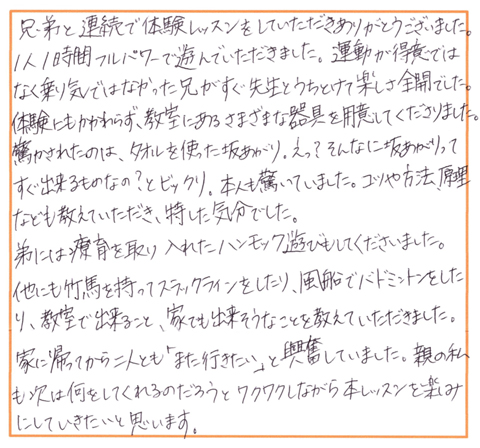 兄弟と連続で体験レッスンをしていただきありがとうございました。
1人1時間フルパワーで遊んでいただきました。運動が得意では
なく乗り気ではなかった兄がすぐ先生とうちとけて楽しさ全開でした。
体験にもかかわらず、教室にあるさまざまな器具を用意してくださりました。
驚かされたのは、タオルを使った坂あがり。えっ?そんなに坂あがりって
すぐ出来るものなの?とビックリ。本人も驚いていました。コツや方法、原理
なども教えていただき、特した気分でした。
弟には療育を取り入れたハンモック遊びもしてくださいました。
他にも竹馬を持ってスラックラインをしたり、風船でバドミントンをした
り、教室で出来ること、家でも出来そうなことを教えていただきました。
家に帰ってから二人とも「また行きたい」と興奮していました。親の私
も次は何をしてくれるのだろうとワクワクしながら本レッスンを楽しみ
にしていきたいと思います。